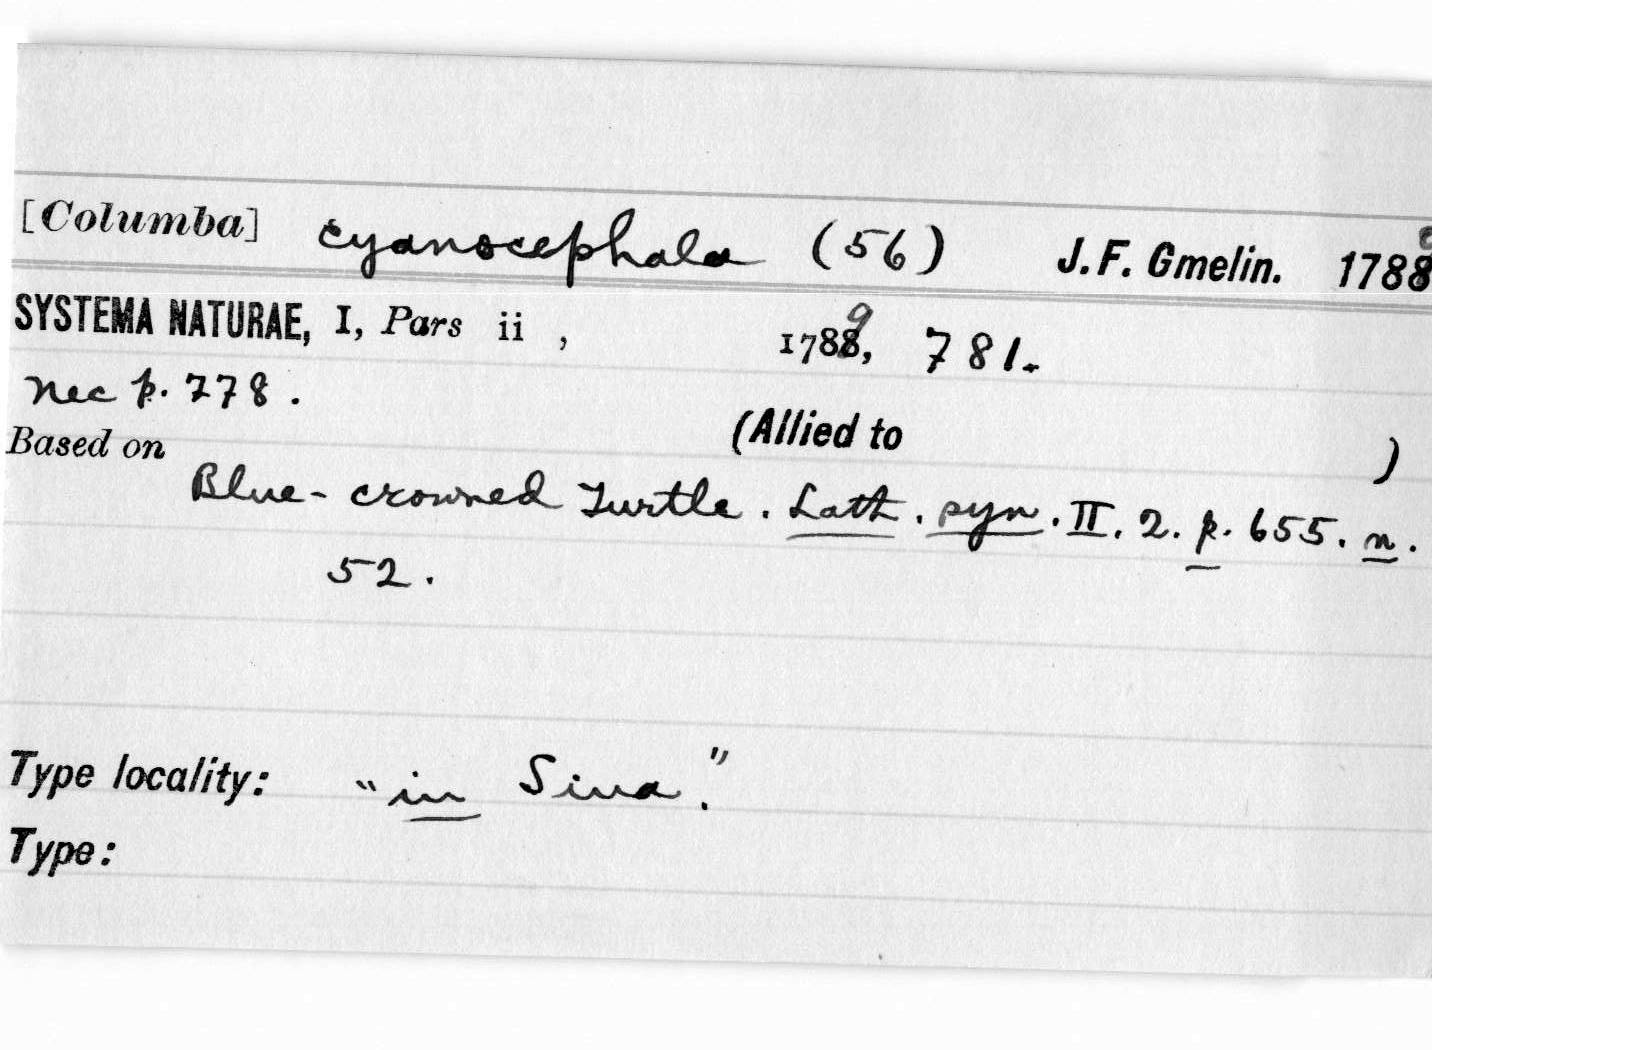 [Columba] cyanocephala (56) J. F. Gmelin. 1788
SYSTEMA NATURAE, I, Pars ii , 1789, 781.
nec p. 778.
(Allied to )
Based on
Blue-crowned Turtle. Lath. syn. II. 2. p. 655. n.
52.
Type locality: "in Sina."
Type: